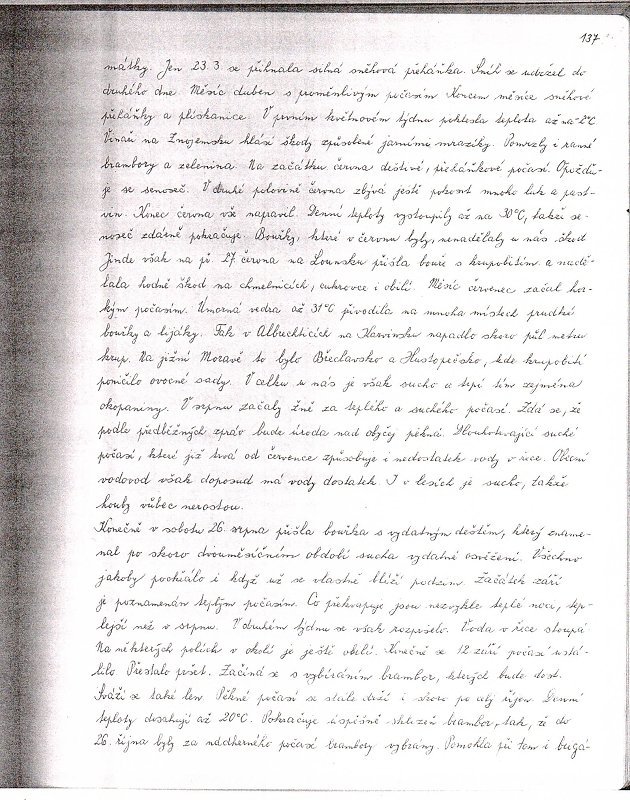 137
mátky. Jen 23.3. se přihnala silná sněhová přeháňka. Sníh se udržel do
druhého dne. Měsíc duben s proměnlivým počasím. Koncem měsíce sněhové
přeháňky a plískanice. V prvním květnovém týdnu poklesla teplota až na -2°C.
Vinaři na Znojemsku hlásí škody způsobené jarními mrazíky. Pomrzly i ranné
brambory a zelenina. Na začátku června deštivé, přeháňkové počasí. Opožďu-
je se senoseč. V druhé polovině června zbývá ještě pokosit mnoho luk a past-
vin. Konec června vše napravil. Denní teploty vystoupily až na 30°C, takže se-
noseč zdárně pokračuje. Bouřky, které v červnu byly, nenadělaly u nás škod
Jinde však na př. 27. června na Lounsku přišla bouře s krupobitím a nadě-
lala hodně škod na chmelnicích, cukrovce i obilí. Měsíc červenec začal hor-
kým počasím. Úmorná vedra až 31°C přivodila na mnoha místech prudké
bouřky a lijáky. Tak v Albrechticích na Karvinsku napadlo skoro půl metru
krup. Na jižní Moravě to bylo Břeclavsko a Hustopečsko, kde krupobití
poničilo ovocné sady. V celku u nás je však sucho a trpí tím zejména
okopaniny. V srpnu začaly žně za teplého a suchého počasí. Zdá se, že
podle předběžných zpráv bude úroda nad obyčej pěkná. Dlouhotrvající suché
počasí, které již trvá od července způsobuje i nedostatek vody v řece. Obecní
vodovod však doposud má vody dostatek. I v lesích je sucho, takže
houby vůbec nerostou.
Konečně v sobotu 26. srpna přišla bouřka s vydatným deštěm, který zname-
nal po skoro dvouměsíčním období sucha vydatné osvěžení. Všechno
jakoby pookřálo i když už se vlastně blíží podzim. Začátek září
je poznamenán teplým počasím. Co překvapuje jsou nezvykle teplé noci, tep-
lejší než v srpnu. V druhém týdnu se však rozpršelo. Voda v řece stoupá
Na některých polích v okolí je ještě obilí. Konečně se 12. září počasí ustá-
lilo. Přestalo pršet. Začíná se s vybíráním brambor, kterých bude dost.
Sváží se také len. Pěkné počasí se stále drží i skoro po celý říjen. Denní
teploty dosahují až 20°C. Pokračuje úspěšně sklizeň brambor, tak, že do
26. října byly za nádherného počasí brambory vybrány. Pomohla při tom i brigá-